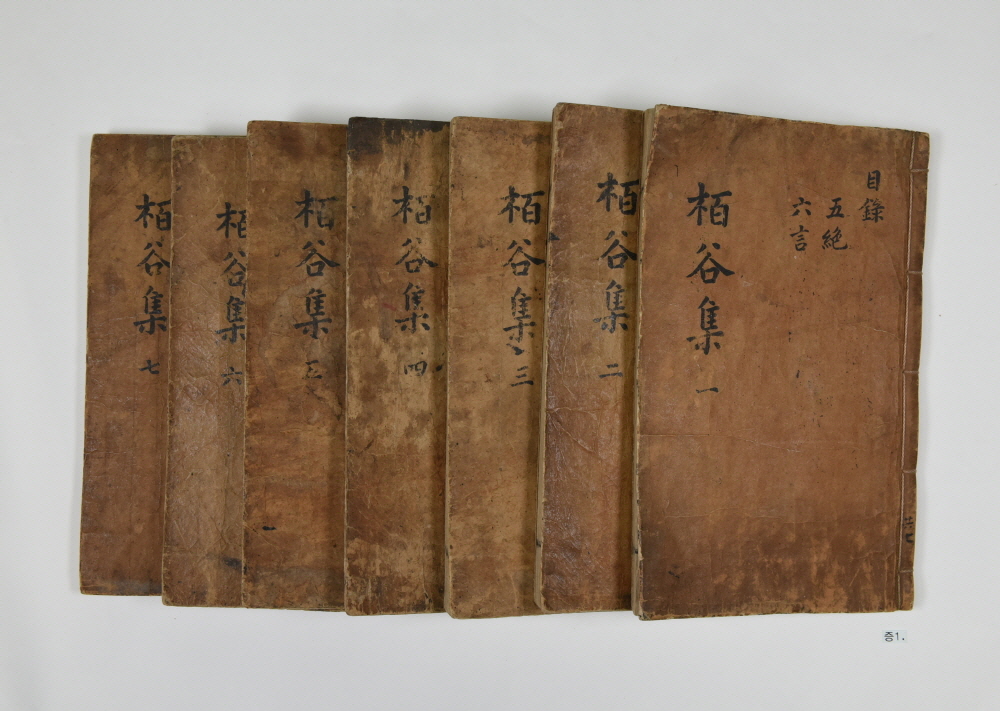 目錄
五絶
六言
栢谷集 一
共七
栢谷集 二
栢谷集 三
栢谷集 四
栢谷集 五
栢谷集 六
栢谷集 七
증1.